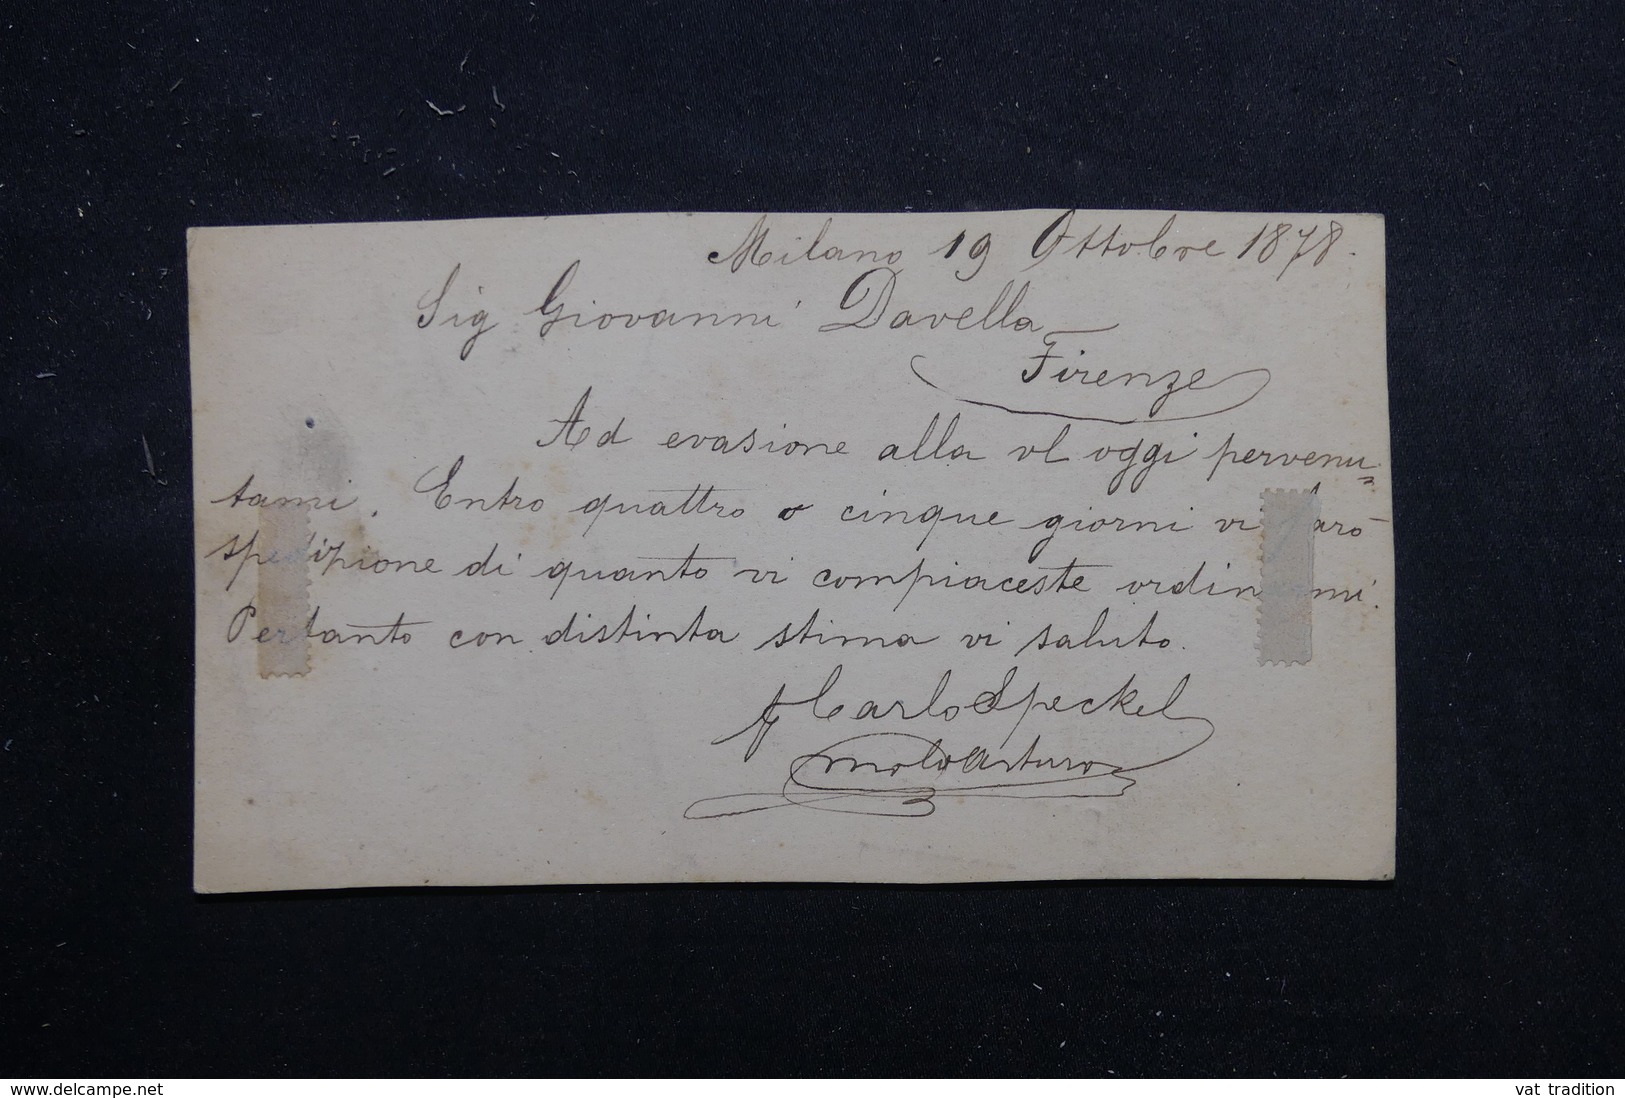 Milano 19 Ottobre 1878.
Sig Giovanni Davella
Firenze
Ad evasione alla vl oggi pervenu=
tami. Entro quattro o cinque giorni vi farò
spedizione di quanto vi compiaceste ordinarmi.
Pertanto con distinta stima vi saluto.
Carlo Speckel
Molo Arturo
delcampe.net
vat tradition